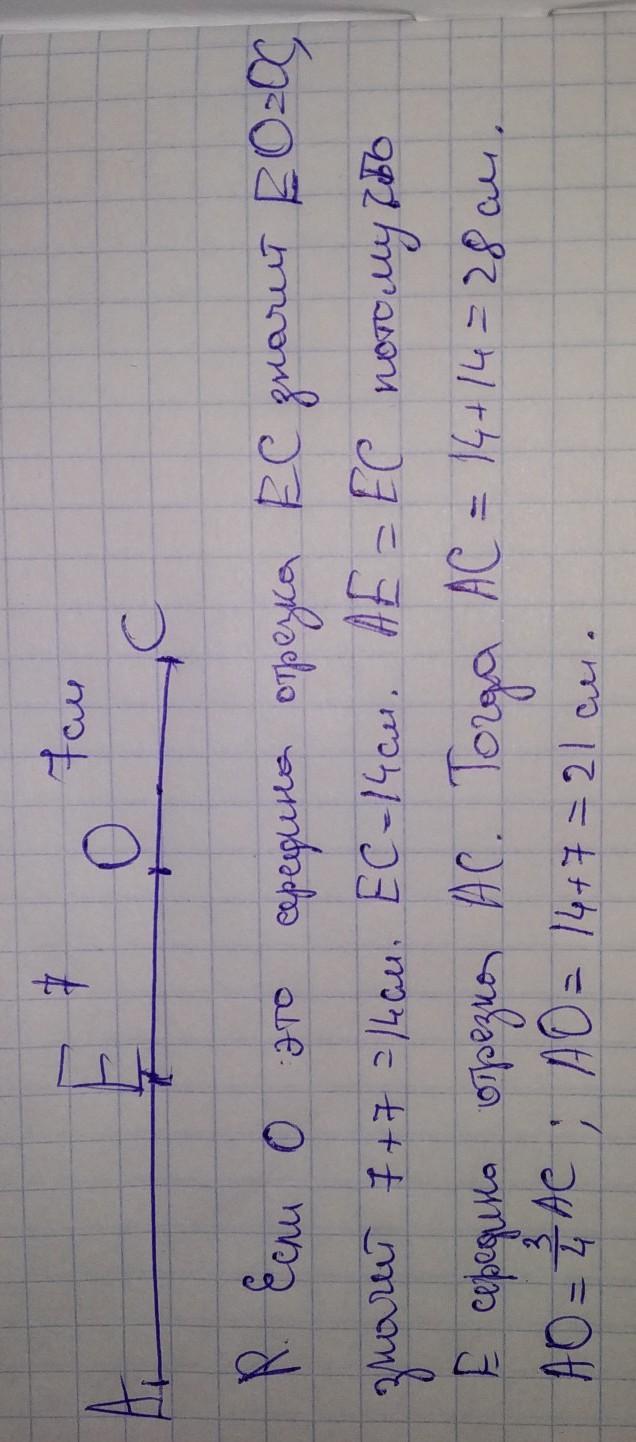 7 7см
A E O C
R. Если O это середина отрезка EC значит EO=OC,
значит 7+7=14см. EC=14см. AE=EC потому что
E середина отрезка AC. Тогда AC=14+14=28см.
AO=3/4 AC; AO=14+7=21см.